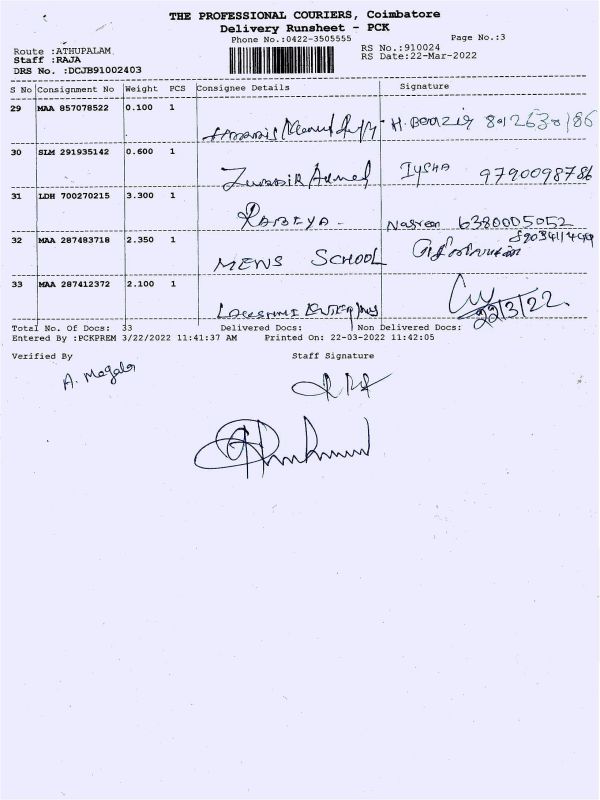 THE PROFESSIONAL COURIERS, Coimbatore
Delivery Runsheet - PCK
Phone No.:0422-3505555 Page No.:3
Route :ATHUPALAM RS No.:910024
Staff :RAJA RS Date:22-Mar-2022
DRS No. :DCJB91002403
S No Consignment No Weight PCS Consignee Details Signature
29 MAA 857078522 0.100 1
H. Benazir
30 SLM 291935142 0.600 1
Zubair Ahmed IYSHA 9790098786
31 LDH 700270215 3.300 1
RABIYA - Nasreen 6380005052
32 MAA 287483718 2.350 1
MEWS SCHOOL
33 MAA 287412372 2.100 1
LAKSHMI 22/3/22.
Total No. Of Docs: 33 Delivered Docs: Non Delivered Docs:
Entered By :PCKPREM 3/22/2022 11:41:37 AM Printed On: 22-03-2022 11:42:05
Verified By Staff Signature
A. Magala